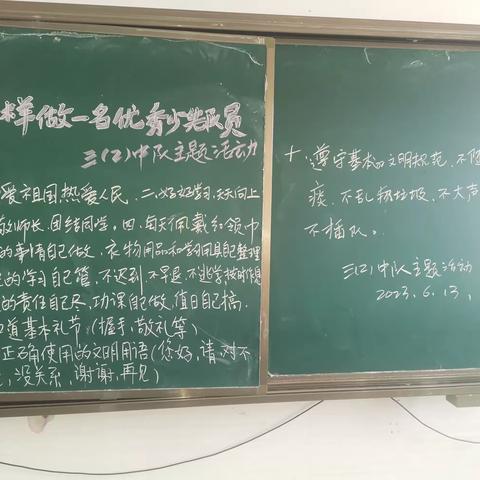 样做一名优秀少先队员
三(2)中队主题活动
爱祖国,热爱人民、二、好好学习,天天向上
敬师长,团结同学。四、每天佩戴红领巾
的事情自己做,衣物用品和学习用具自己整理
的学习自己管,不迟到不早退不逃学按时作息
的责任自己尽,功课自己做,值日自己搞。
道基本礼节(握手、敬礼等)
正确使用的文明用语(您好,请,对不
,没关系,谢谢,再见)
十、遵守基本的文明规范,不随
痰、不乱扔垃圾、不大声
不插队。
三(2)中队主题活动
2023.6.13.